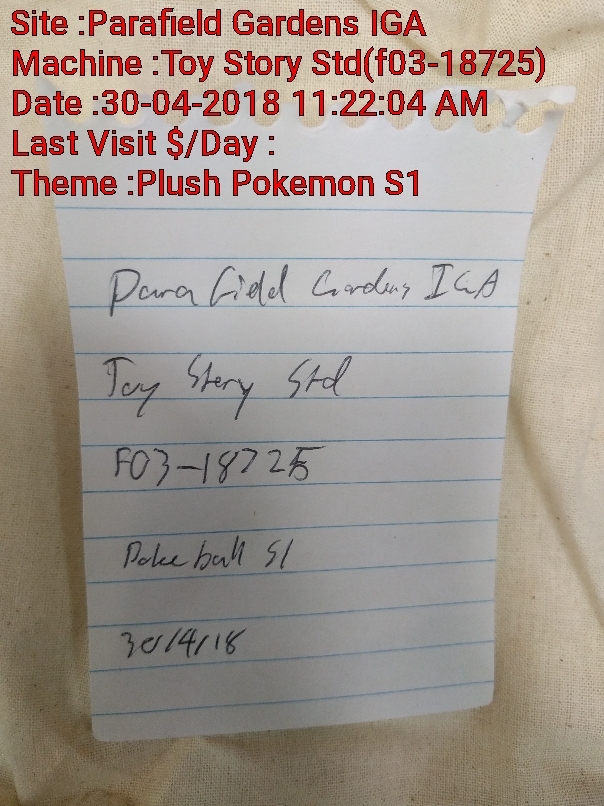 Site :Parafield Gardens IGA
Machine :Toy Story Std(f03-18725)
Date :30-04-2018 11:22:04 AM
Last Visit $/Day :
Theme :Plush Pokemon S1
Para field Gardens IGA
Toy Story Std
F03-18725
Poke ball S1
30/4/18